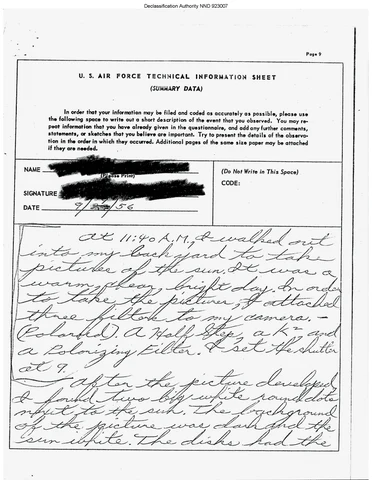 Declassification Authority NND 923007
Page 9
U. S. AIR FORCE TECHNICAL INFORMATION SHEET
(SUMMARY DATA)
In order that your information may be filed and coded as accurately as possible, please use
the following space to write out a short description of the event that you observed. You may re-
peat information that you have already given in the questionnaire, and add any further comments,
statements, or sketches that you believe are important. Try to present the details of the observa-
tion in the order in which they occurred. Additional pages of the same size paper may be attached
if they are needed.
NAME
(Please Print)
SIGNATURE
DATE 9/ /56
(Do Not Write in This Space)
CODE:
At 11:40 A.M., I walked out
into my back yard to take
pictures of the sun. It was a
warm, clear, bright day. In order
to take the picture, I attached
three filters to my camera. -
(Polaroid). A Half Step, a K2 and
a Polorizing Filter. I set the shutter
at 9.
After the picture developed
I found two big white round dots
next to the sun. The background
of the picture was dark and the
sun white. The disks had the